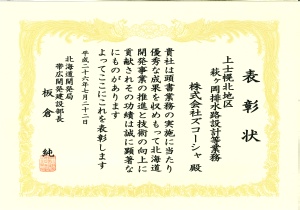 表彰状
上士幌北地区
萩ヶ岡排水路設計等業務
株式会社ズコーシャ殿
貴社は頭書業務の実施に当たり
優秀な成果を収めもって北海道
開発事業の推進と技術の向上に
貢献されその功績は誠に顕著な
ものがあります
よってここにこれを表彰します
平成二十六年七月二十二日
北海道開発局
帯広開発建設部長
板倉 純